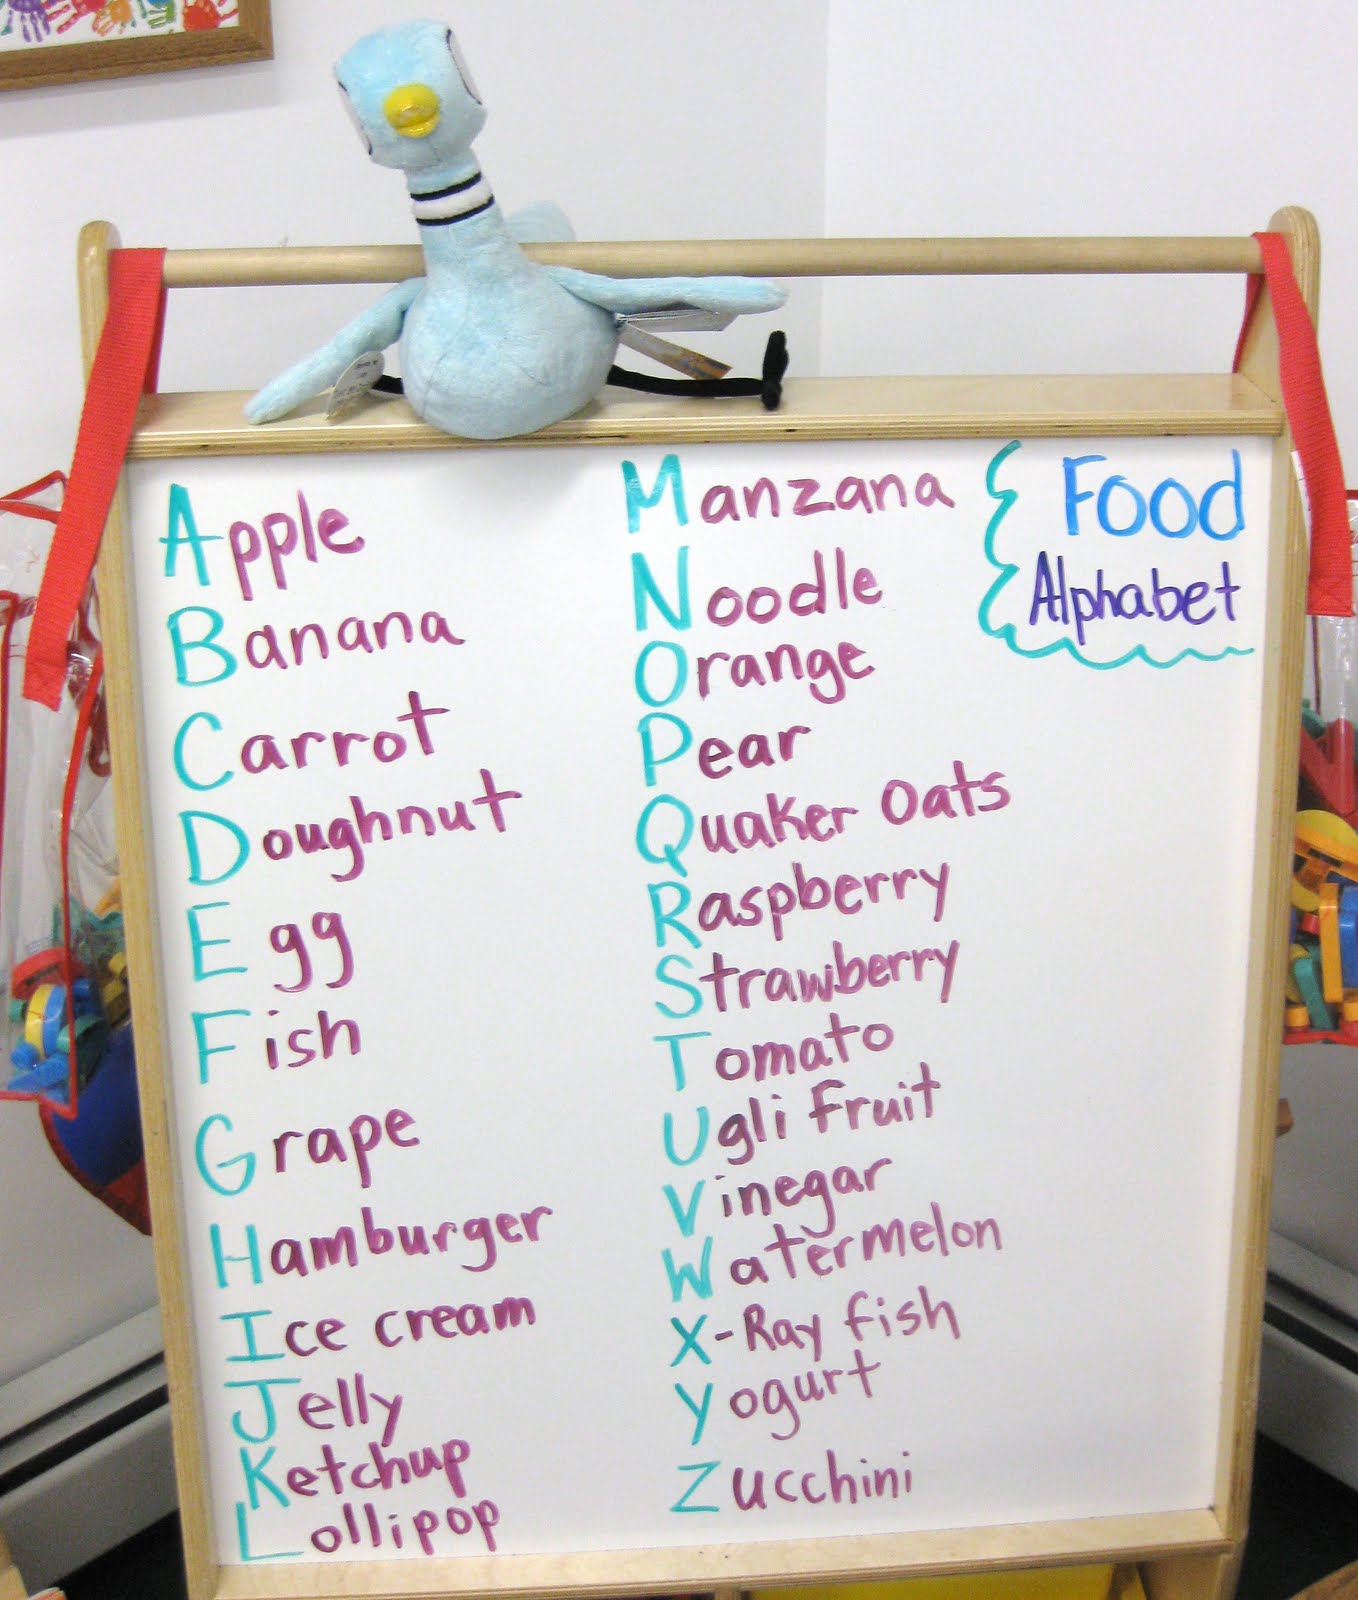 Apple
Banana
Carrot
Doughnut
Egg
Fish
Grape
Hamburger
Ice cream
Jelly
Ketchup
Lollipop
Manzana
Noodle
Orange
Pear
Quaker Oats
Raspberry
Strawberry
Tomato
Ugli Fruit
Vinegar
Watermelon
X-Ray fish
Yogurt
Zucchini
Food
Alphabet